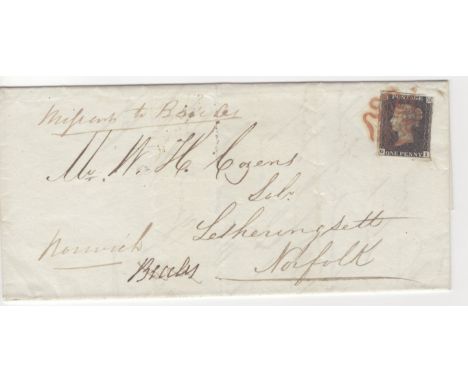 Missent to Beccles
POSTAGE
ONE PENNY
Mr. W. H. Cozens
Solr.
Letheringsett
Norwich
Beccles
Norfolk